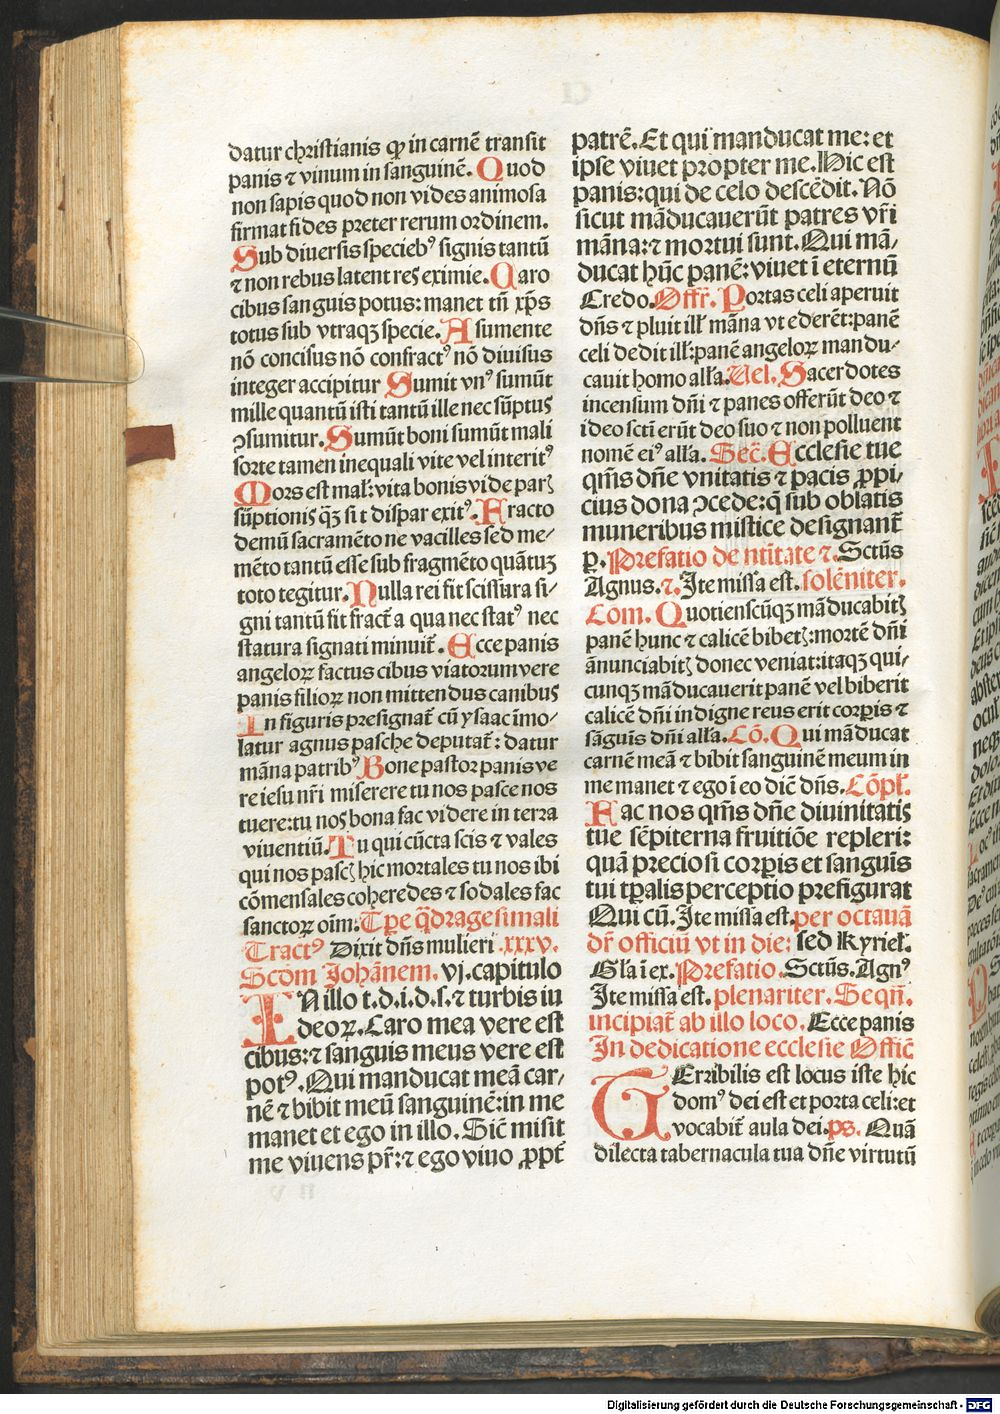 datur christianis ꝙ in carnē transit
panis ⁊ vinum in sanguinē. Quod
non sapis quod non vides animosa
firmat fides preter rerum ordinem.
Sub diversis speciebꝰ signis tantū
⁊ non rebus latent res eximie. Caro
cibus sanguis potus: manet tn̄ xp̄s
totus sub vtraqꝫ specie. A sumente
nō concisus nō confractꝰ nō divisus
integer accipitur Sumit vnꝰ sumūt
mille quantū isti tantū ille nec sūptus
ꝯsumitur. Sumūt boni sumūt mali
sorte tamen inequali vite vel interitꝰ
Mors est mal': vita bonis vide parꝭ
sūptionis qꝫ sit dispar exitꝰ. Fracto
demū sacramēto ne vacilles sed me⸗
mēto tantū esse sub fragmēto quātuꝫ
toto tegitur. Nulla rei fit scissura si⸗
gni tantū fit fract̄a qua nec statꝰ nec
statura signati minuit̄. Ecce panis
angeloꝝ factus cibus viatorum vere
panis filioꝝ non mittendus canibus
In figuris presignat̄ cū ysaac īmo⸗
latur agnus pasche deputat̄: datur
māna patribꝰ Bone pastor panis ve
re iesu nr̄i miserere tu nos pasce nos
tuere: tu nos bona fac videre in terra
viventiū. Tu qui cūcta scis ⁊ vales
qui nos pascꝭ hic mortales tu nos ibi
cōmensales coheredes ⁊ sodales fac
sanctoꝝ oīm: Tp̄e q̄dragesimali
Tractꝰ Dixit dn̄s mulieri .xxxv.
Scd̄m Johānem. vj. capitulo
IN illo t. d. i. d. s. ⁊ turbis iu
deoꝝ. Caro mea vere est
cibus: ⁊ sanguis meus vere est
potꝰ. Qui manducat meā car⸗
nē ⁊ bibit meū sanguinē: in me
manet et ego in illo. Sic̄ misit
me vivens pr̄: ⁊ ego vivo ꝓpt̄
patrē. Et qui manducat me: et
ipse vivet propter me. Hic est
panis: qui de celo descēdit. Nō
sicut māducaverūt patres vr̄i
māna: ⁊ mortui sunt. Qui mā⸗
ducat hūc panē: vivet ī eternū
Credo. Offr̄. Portas celi aperuit
dn̄s ⁊ pluit ill' māna vt ederēt: panē
celi dedit ill': panē angeloꝝ mandu⸗
cavit homo alł'a. Vel. Sacerdotes
incensum dn̄i ⁊ panes offerūt deo ⁊
ideo sct̄i erūt deo suo ⁊ non polluent
nomē eiꝰ alł'a. Sec̄. Ecclesie tue
qm̄s dn̄e vnitatis ⁊ pacis ꝓpi⸗
cius dona ꝯcede: q̄ sub oblatis
muneribus mistice designant̄
ꝑ. Prefatio de nt̄itate ⁊. Sct̄us
Agnus. ⁊. Ite missa est. solēniter.
Com. Quotienscūqꝫ māducabitꝭ
panē hunc ⁊ calicē bibetꝭ: mortē dn̄i
ānunciabitꝭ donec veniat: itaqꝫ qui⸗
cunqꝫ māducaverit panē vel biberit
calicē dn̄i indigne reus erit corꝑis ⁊
sāguīs dn̄i alł'a. Cō. Qui māducat
carnē meā ⁊ bibit sanguinē meum in
me manet ⁊ ego ī eo dic̄ dn̄s. Cōpl'.
Fac nos qm̄s dn̄e divinitatis
tue sēpiterna fruitiōe repleri:
quā preciosi corꝑis et sanguīs
tui tp̄alis perceptio prefigurat
Qui cū. Ite missa est. per octavā
dr̄ officiū vt in die: sed Kyriel'.
Gl'a ī ex. Prefatio. Sct̄us. Agnꝰ
Ite missa est. plenariter. Seqn̄.
incipiat̄ ab illo loco. Ecce panis
In dedicatione ecclesie Offic̄
TErribilis est locus iste hic
domꝰ dei est et porta celi: et
vocabit̄ aula dei. ps. Quā
dilecta tabernacula tua dn̄e virtutū
Digitalisierung gefördert durch die Deutsche Forschungsgemeinschaft - DFG